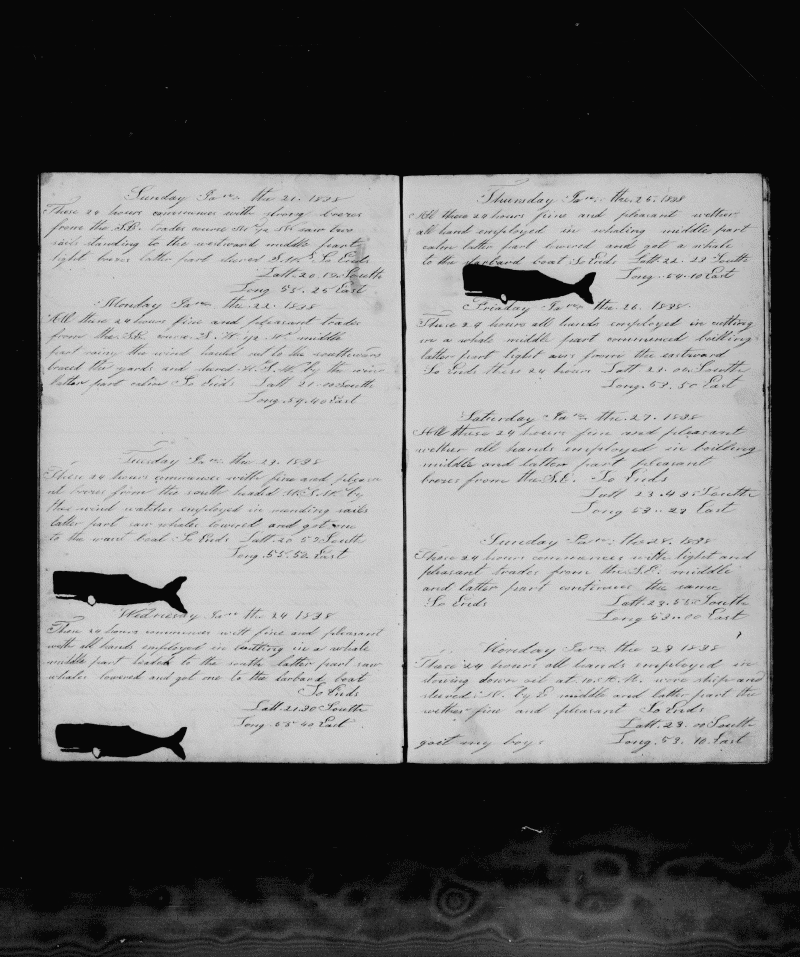 Sunday Jan the 21. 1838
These 24 hours commences with strong breses
from the S.E. trades saw two
sails standing to the westward middle part
light breses latter part stered So Ends
Latt. 20.12 South
Long 55.25 East
Monday Jan the 22. 1838
All these 24 hours fine and pleasant trades
from the S.E. middle
part rainy the wind hauled out to the southward
braced the yards and stered by the wind
latter part calm So Ends Latt 21.10 South
Long. 54.40 East
Tuesday Jan the 23. 1838
These 24 hours commences with fine and pleas
at breses from the south headed W.S.W. by
the wind watches employed in mending sails
latter part saw whales lowered and got one
to the waist boat So Ends Latt. 20.52 South
Long. 55.52 East
Wednesday Jan the 24 1838
These 24 hours commences with fine and pleasant
with all hands employed in cutting in a whale
middle part headed to the south latter part saw
whales lowered and got one to the larboard boat
So Ends
Latt 21.30 South
Long. 55 40 East
Thursday Jan the 25. 1838
All these 24 hours fine and pleasant wether
all hand employed in whaling middle part
calm latter part lowered and got a whale
to the starboard boat So Ends Latt 22.22 South
Long. 54.10 East
Freaday Jan the 26. 1838
These 24 hours all hands employed in cutting
in a whale middle part commenced boiling
latter part light airs from the eastward
So Ends these 24 hours Latt 22.06 South
Long. 53.50 East
Saturday Jan the 27. 1838
All these 24 hours fine and pleasant
wether all hands employed in boiling
middle and latter part pleasant
breses from the S.E. So Ends
Latt 23.43 South
Long 53.23 East
Sunday Jan the 28. 1838
These 24 hours commences with light and
pleasant trades from the S.E. middle
and latter part continues the same
So Ends Latt. 23.55 South
Long. 53.00 East
Monday Jan the 29 1838
These 24 hours all hands employed in
stowing down oil at 10 A.M. wore ship and
stered N. by E middle and latter part the
wether fine and pleasant So Ends
Latt. 23.00 South
goot my boys Long. 53.10 East